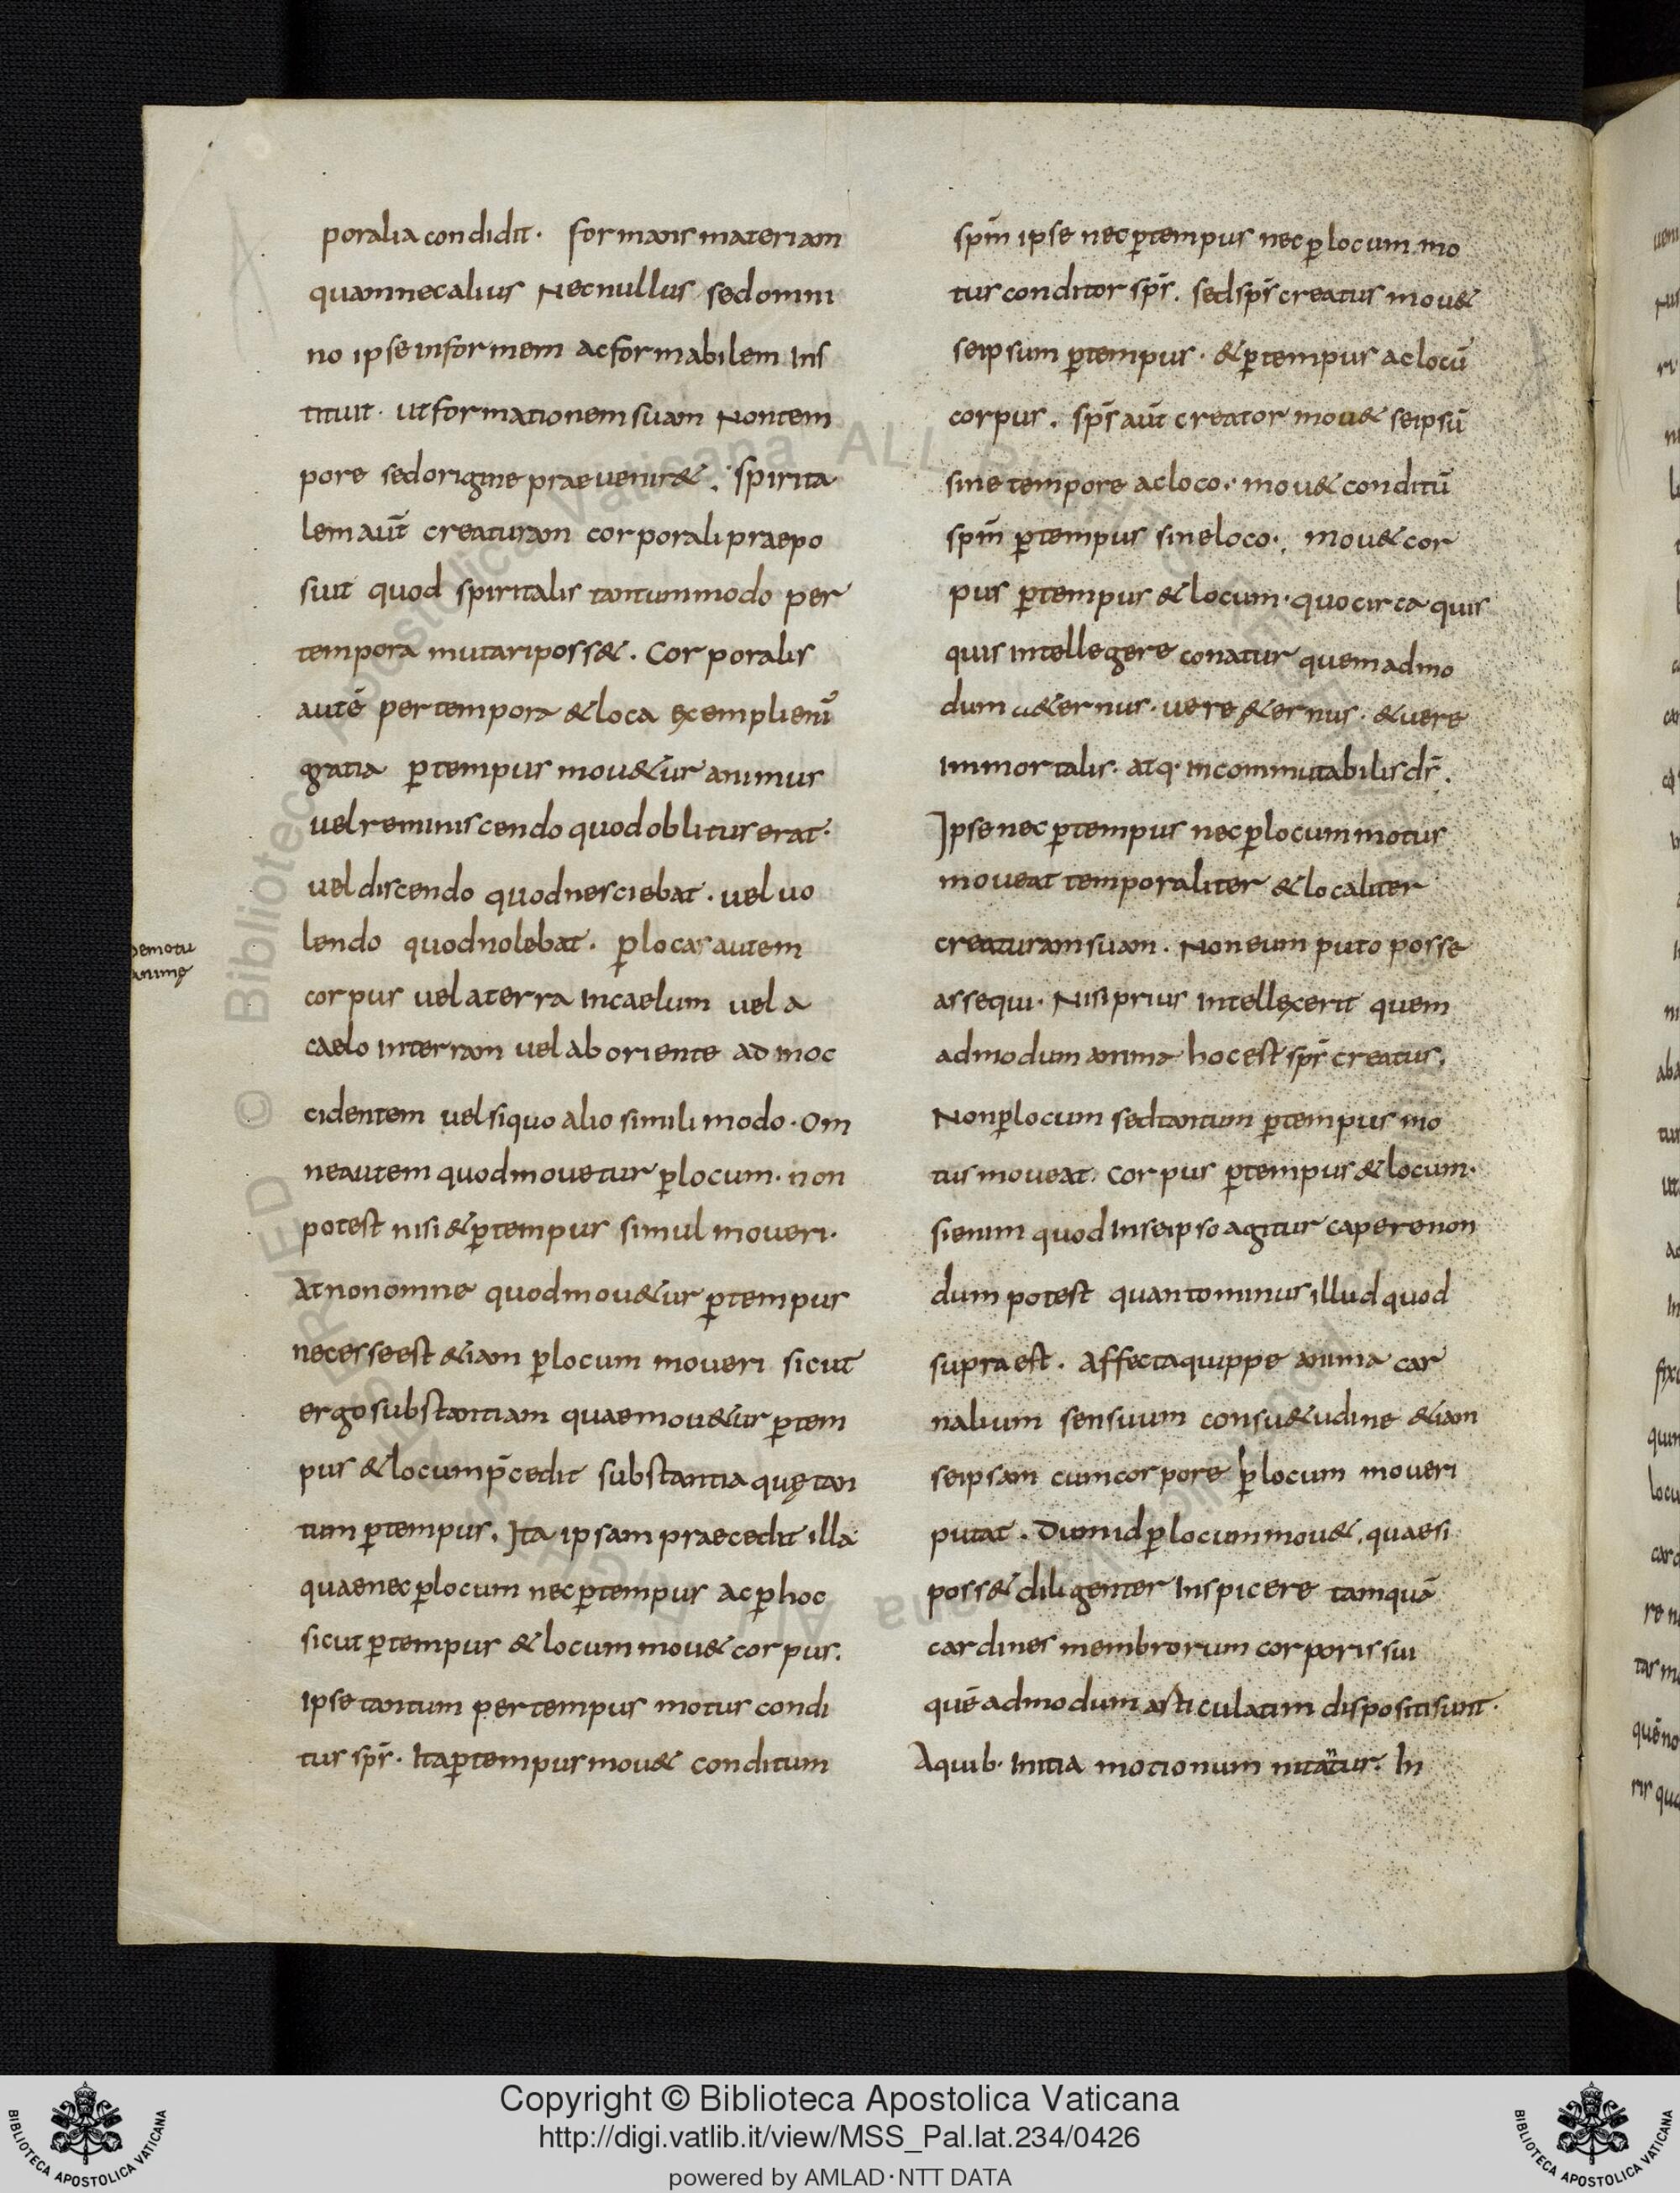 poralia condidit· formans materiam
quam nec alius Nec nullus sed omni
no ipse informem ac formabilem Ins
tituit· ut formationem suam Non tem
pore sed origine praeveniret. Spirita
lem aut̄ creaturam corporali praepo
suit quod spiritalis tantummodo per
tempora mutari poss&. Corporalis
autē per tempora & loca exempli eni
gratia ꝑ tempus mou&ur animus
vel reminiscendo quod oblitus erat·
vel discendo quod nesciebat· vel vo
lendo quod nolebat· ꝑ locas autem
corpus vel a terra In caelum vel a
caelo In terram vel ab oriente ad in oc
cidentem vel si quo alio simili modo· Om
ne autem quod movetur ꝑ locum· non
potest nisi & ꝑ tempus simul moveri·
At non omne quod mou&ur ꝑ tempus
necesse est &iam ꝑ locum moveri sicut
ergo substantiam quae mou&ur ꝑ tem
pus & locum p̄cedit substantia quę tan
tum ꝑ tempus. Ita ipsam praecedit illa
quae nec ꝑ locum nec ꝑ tempus ac ꝑ hoc
sicut ꝑ tempus & locum mou& corpus.
Ipse tantum per tempus motus condi
tus sp̄s· Ita ꝑ tempus mou& conditum
De motu
animę
sp̄m ipse nec ꝑ tempus nec ꝑ locum mo
tus conditor sp̄s. sed sp̄s creatus mou&
seipsum ꝑ tempus· & ꝑ tempus ac locū
corpus. sp̄s aut̄ creator mou& seipsū
sine tempore ac loco· mou& conditū
sp̄m ꝑ tempus sine loco·, mou& cor
pus ꝑ tempus & locum· quocirca quis
quis intellegere conatur quemadmo
dum &ernus· vere &ernus· & vere
Immortalis· atq· incommutabilis d̄s.
Ipse nec ꝑ tempus nec ꝑ locum motus
moveat temporaliter & localiter
creaturam suam· Non eum puto posse
assequi· Nisi prius Intellexerit quem
admodum anima hoc est sp̄s creatus,
Non ꝑ locum sed tantum ꝑ tempus mo
tus moveat. corpus ꝑ tempus & locum·
si enim quod In seipso agitur capere non
dum potest quanto minus illud quod
supra est. Affecta quippe anima car
nalium sensuum consu&udine &iam
seipsam cum corpore ꝑ locum moveri
putat. Dum id ꝑ locum mou&, quae si
poss& diligenter Inspicere tamquā
cardines membrorum corporis sui
quē admodum articulatim dispositi sunt·
A quib· Initia motionum nitantur· In